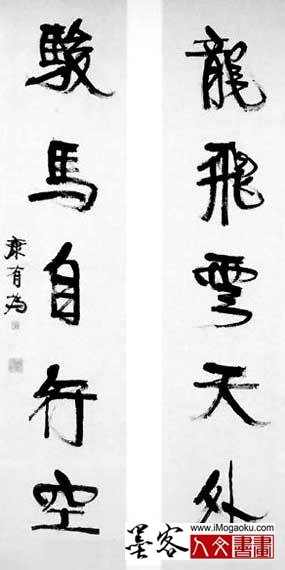 龍飛雲天外
駿馬自行空
康有為
墨客
www.iMogaoku.com
人文書畫